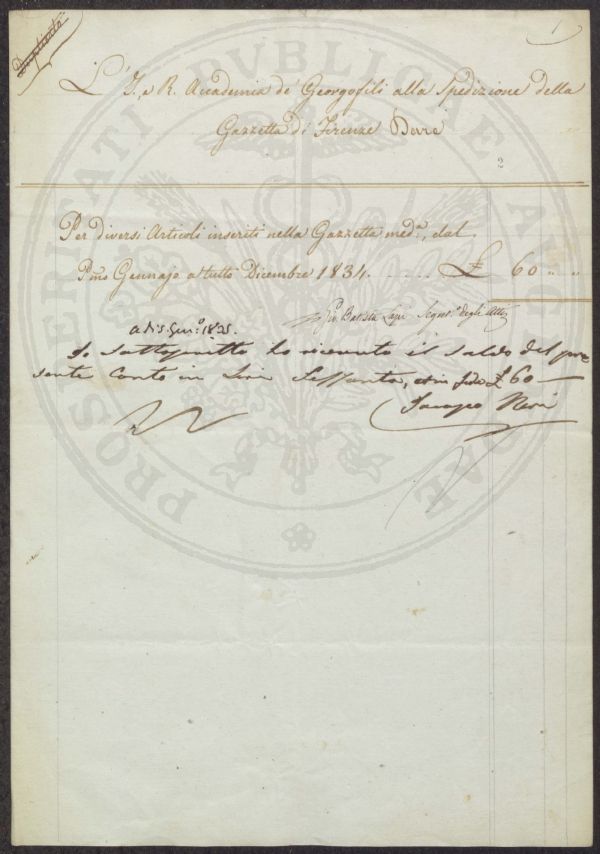 Duplicato
1
L'I. e R. Accademia de' Georgofili alla Spedizione della
Gazzetta di Firenze Deve
2
Per diversi Articoli inseriti nella Gazzetta med.ª, dal
P.mo Gennajo a tutto Dicembre 1834. ..... £ 60 " "
Gio. Batista Lapi Segret.º degli Atti
a dì 5 Gen.º 1835.
Io sottoscritto ho ricevuto il saldo del pre
sente Conto in Lire Sessanta, et in fede £ 60 —
Jacopo Neri
PROSPERITATI PVBLICAE AVGENDAE